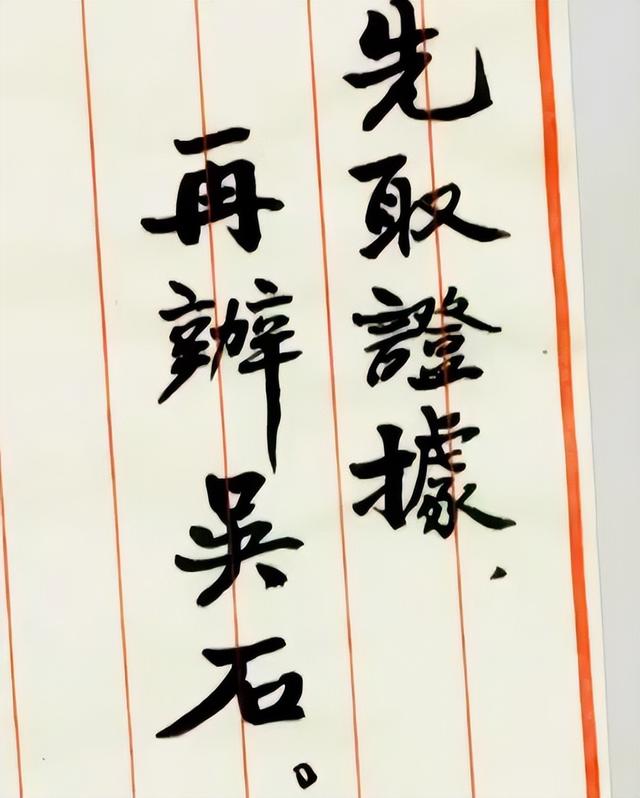 先取證據、
再辦吳石。